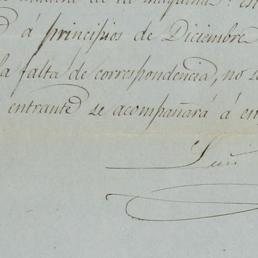 de la maquina: est
á principios de Diciembre
la falta de correspondencia, no se
entrante se acompañará á en